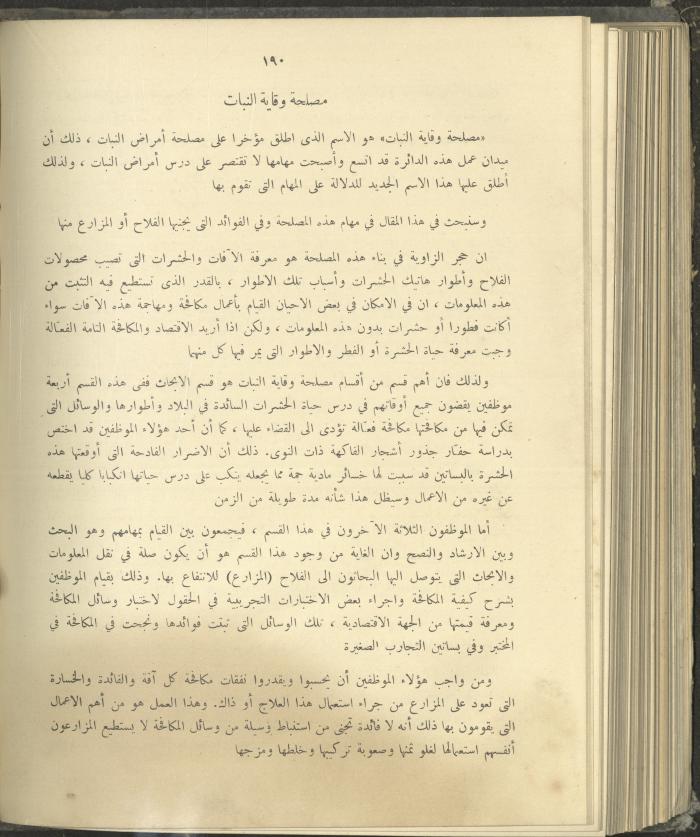 ١٩٠
مصلحة وقاية النبات
«مصلحة وقاية النبات» هو الاسم الذى اطلق مؤخرا على مصلحة أمراض النبات ، ذلك أن
ميدان عمل هذه الدائرة قد اتسع وأصبحت مهامها لا تقتصر على درس أمراض النبات ، ولذلك
أطلق عليها هذا الاسم الجديد للدلالة على المهام التى تقوم بها
وسنبحث في هذا المقال في مهام هذه المصلحة وفي الفوائد التى يجنيها الفلاح أو المزارع منها
ان حجر الزاوية في بناء هذه المصلحة هو معرفة الآفات والحشرات التى تصيب محصولات
الفلاح وأطوار هاتيك الحشرات وأسباب تلك الاطوار ، بالقدر الذى تستطيع فيه التثبت من
هذه المعلومات ، ان في الامكان في بعض الاحيان القيام بأعمال مكافحة ومهاجمة هذه الآفات سواء
أكانت فطورا أو حشرات بدون هذه المعلومات ، ولكن اذا أريد الاقتصاد والمكافحة التامة الفعالة
وجبت معرفة حياة الحشرة أو الفطر والاطوار التى يمر فيها كل منهما
ولذلك فان أهم قسم من أقسام مصلحة وقاية النبات هو قسم الابحاث ففى هذه القسم أربعة
موظفين يقضون جميع أوقاتهم في درس حياة الحشرات السائدة في البلاد وأطوارها والوسائل التى
تمكن فيها من مكافحتها مكافحة فعالة تؤدى الى القضاء عليها ، كما أن أحد هؤلاء الموظفين قد اختص
بدراسة حفار جذور أشجار الفاكهة ذات النوى. ذلك أن الاضرار الفادحة التى أوقعتها هذه
الحشرة بالبساتين قد سببت لها خسائر مادية جمة مما يجعله ينكب على درس حياتها انكبابا كليا يقطعه
عن غيره من الاعمال وسيظل هذا شأنه مدة طويلة من الزمن
أما الموظفون الثلاثة الآخرون في هذا القسم ، فيجمعون بين القيام بمهامهم وهو البحث
وبين الارشاد والنصح وان الغاية من وجود هذا القسم هو أن يكون صلة في نقل المعلومات
والابحاث التى يتوصل اليها البحاثون الى الفلاح (المزارع) للانتفاع بها. وذلك بقيام الموظفين
بشرح كيفية المكافحة واجراء بعض الاختبارات التجريبية في الحقول لاختبار وسائل المكافحة
ومعرفة قيمتها من الجهة الاقتصادية ، تلك الوسائل التى ثبتت فوائدها ونجحت في المكافحة في
المختبر وفي بساتين التجارب الصغيرة
ومن واجب هؤلاء الموظفين أن يحسبوا ويقدروا نفقات مكافحة كل آفة والفائدة والخسارة
التى تعود على المزارع من جراء استعمال هذا العلاج أو ذاك. وهذا العمل هو من أهم الاعمال
التى يقومون بها ذلك أنه لا فائدة تجنى من استنباط وسيلة من وسائل المكافحة لا يستطيع المزارعون
أنفسهم استعمالها لغلو ثمنها وصعوبة تركيبها وخلطها ومزجها